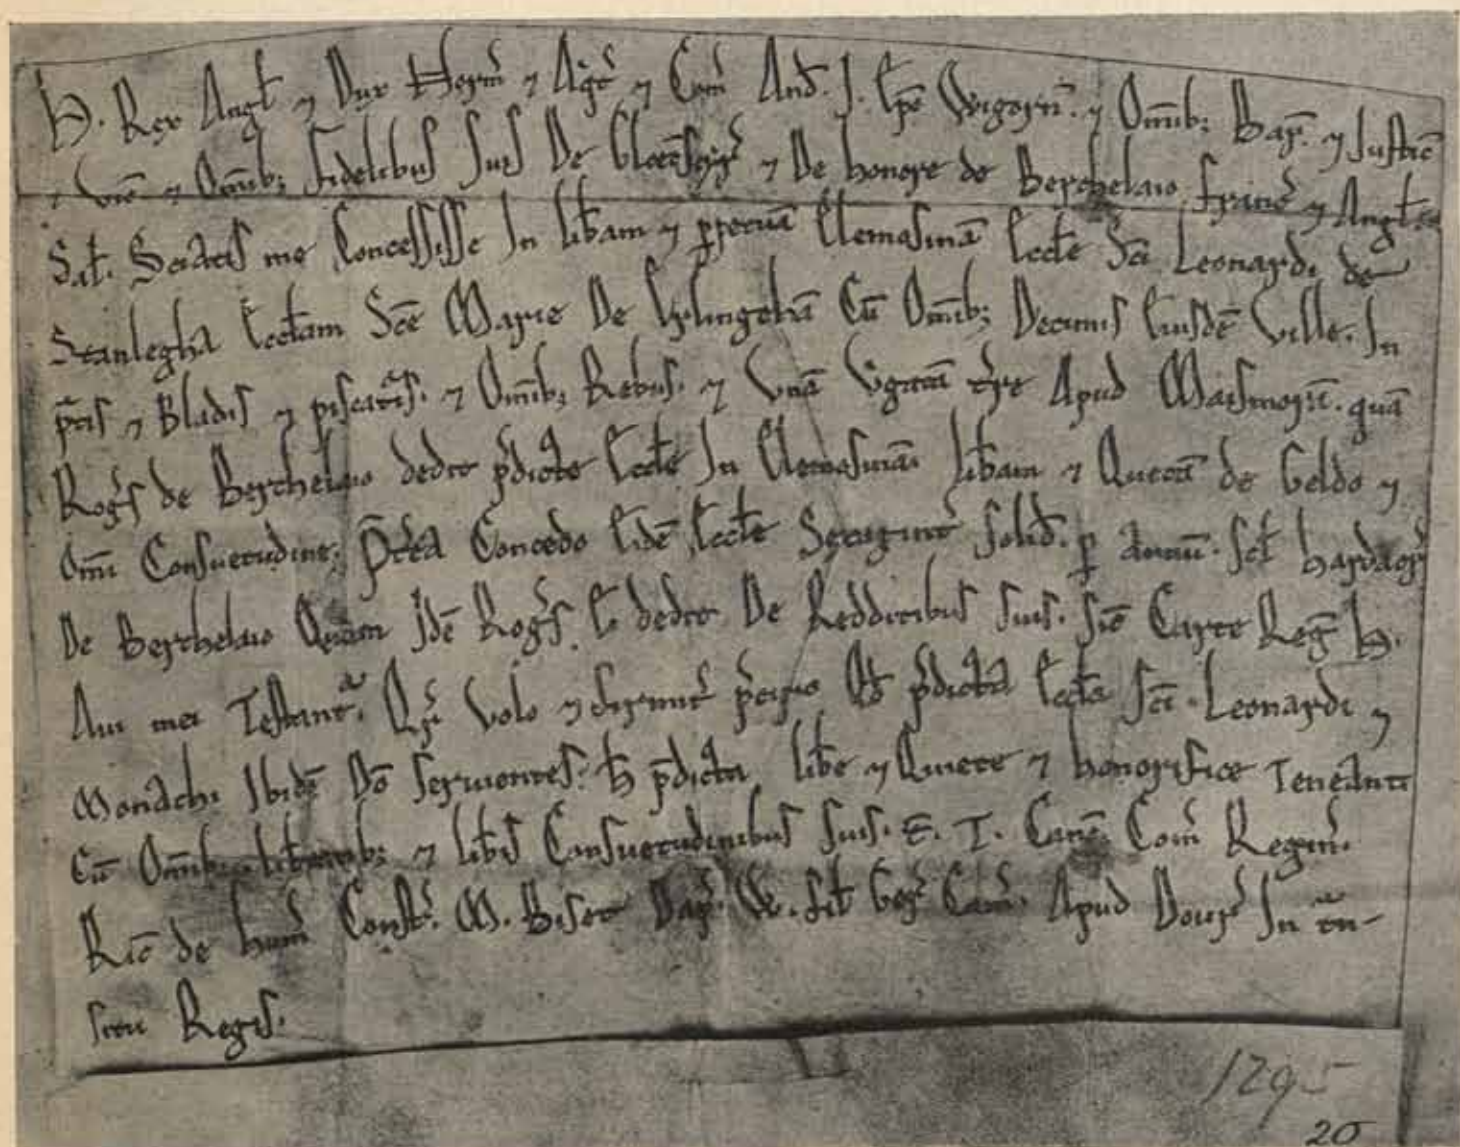 H. Rex Angł ⁊ Dux Norm̃ ⁊ Aq̃t ⁊ Com̃ And̃. J. Ep̃o Wigorñ. ⁊ Om̃ib; Bar̃. ⁊ Justic̃
⁊ vic̃ ⁊ Om̃ib; fidelibus suis De Gloec̃ ⁊ De honore de Berchelaio francis ⁊ Angł
Sał. Sciatis me Concessisse In lib̃am ⁊ ꝑpetuã Elemosinã Eccłe Sc̃i Leonardi de
Stanlegha Eccłam Sc̃e Marie De Erlingehã Cũ Om̃ib; Decimis Eiusdẽ Ville. In
p̃tis ⁊ Bladis ⁊ piscat̃is. ⁊ Om̃ib; Rebus. ⁊ Unã Ỹgatã t̃re Apud Maismorñ. quã
Rog̃s de Berchelaio dedit p̃dicte Eccłe In Elemosinã. lib̃am ⁊ Quietã de Geldo ⁊
Om̃i Consuetudine. P̃t̃ea Concedo Eidẽ Eccłe Sexagint̃ solid̃. ꝑ Annũ. scł hardacr̃
De Berchelaio Quam Idẽ Rog̃s. Ei dedit De Redditibus suis. sic̃ Carte Reg̃ H.
Aui mei Testant̃. Qr̃ Volo ⁊ firmit̃ p̃cipio Qd̃ p̃dicta Eccła Sc̃i. Leonardi ⁊
Monachi Ibidẽ Dõ seruientes. h̃ p̃dicta libe ⁊ Quiete ⁊ honorifice Teneant
Cũ Om̃ib; lib̃tatib; ⁊ lib̃is Consuetudinibus suis. T. T. Canc̃. Com̃ Regin̄.
Ric̃ de hum̃ Const̃. M. Biset Dap̃. W. fił Ger̃ Cam̃. Apud Dour̃ In t̃n-
situ Regis.
1295
20